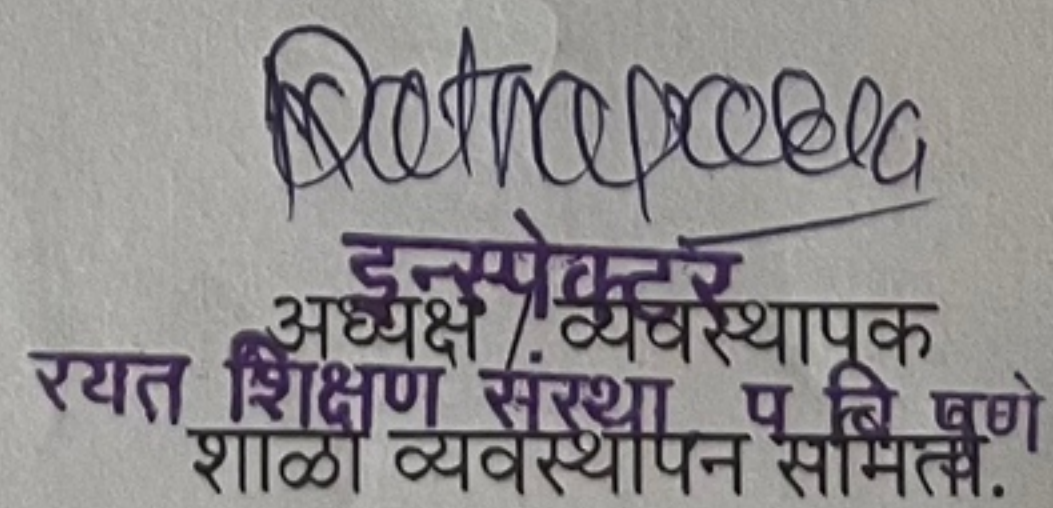 इन्स्पेक्टर
अध्यक्ष / व्यवस्थापक
रयत शिक्षण संस्था प वि पुणे
शाळा व्यवस्थापन समिती.